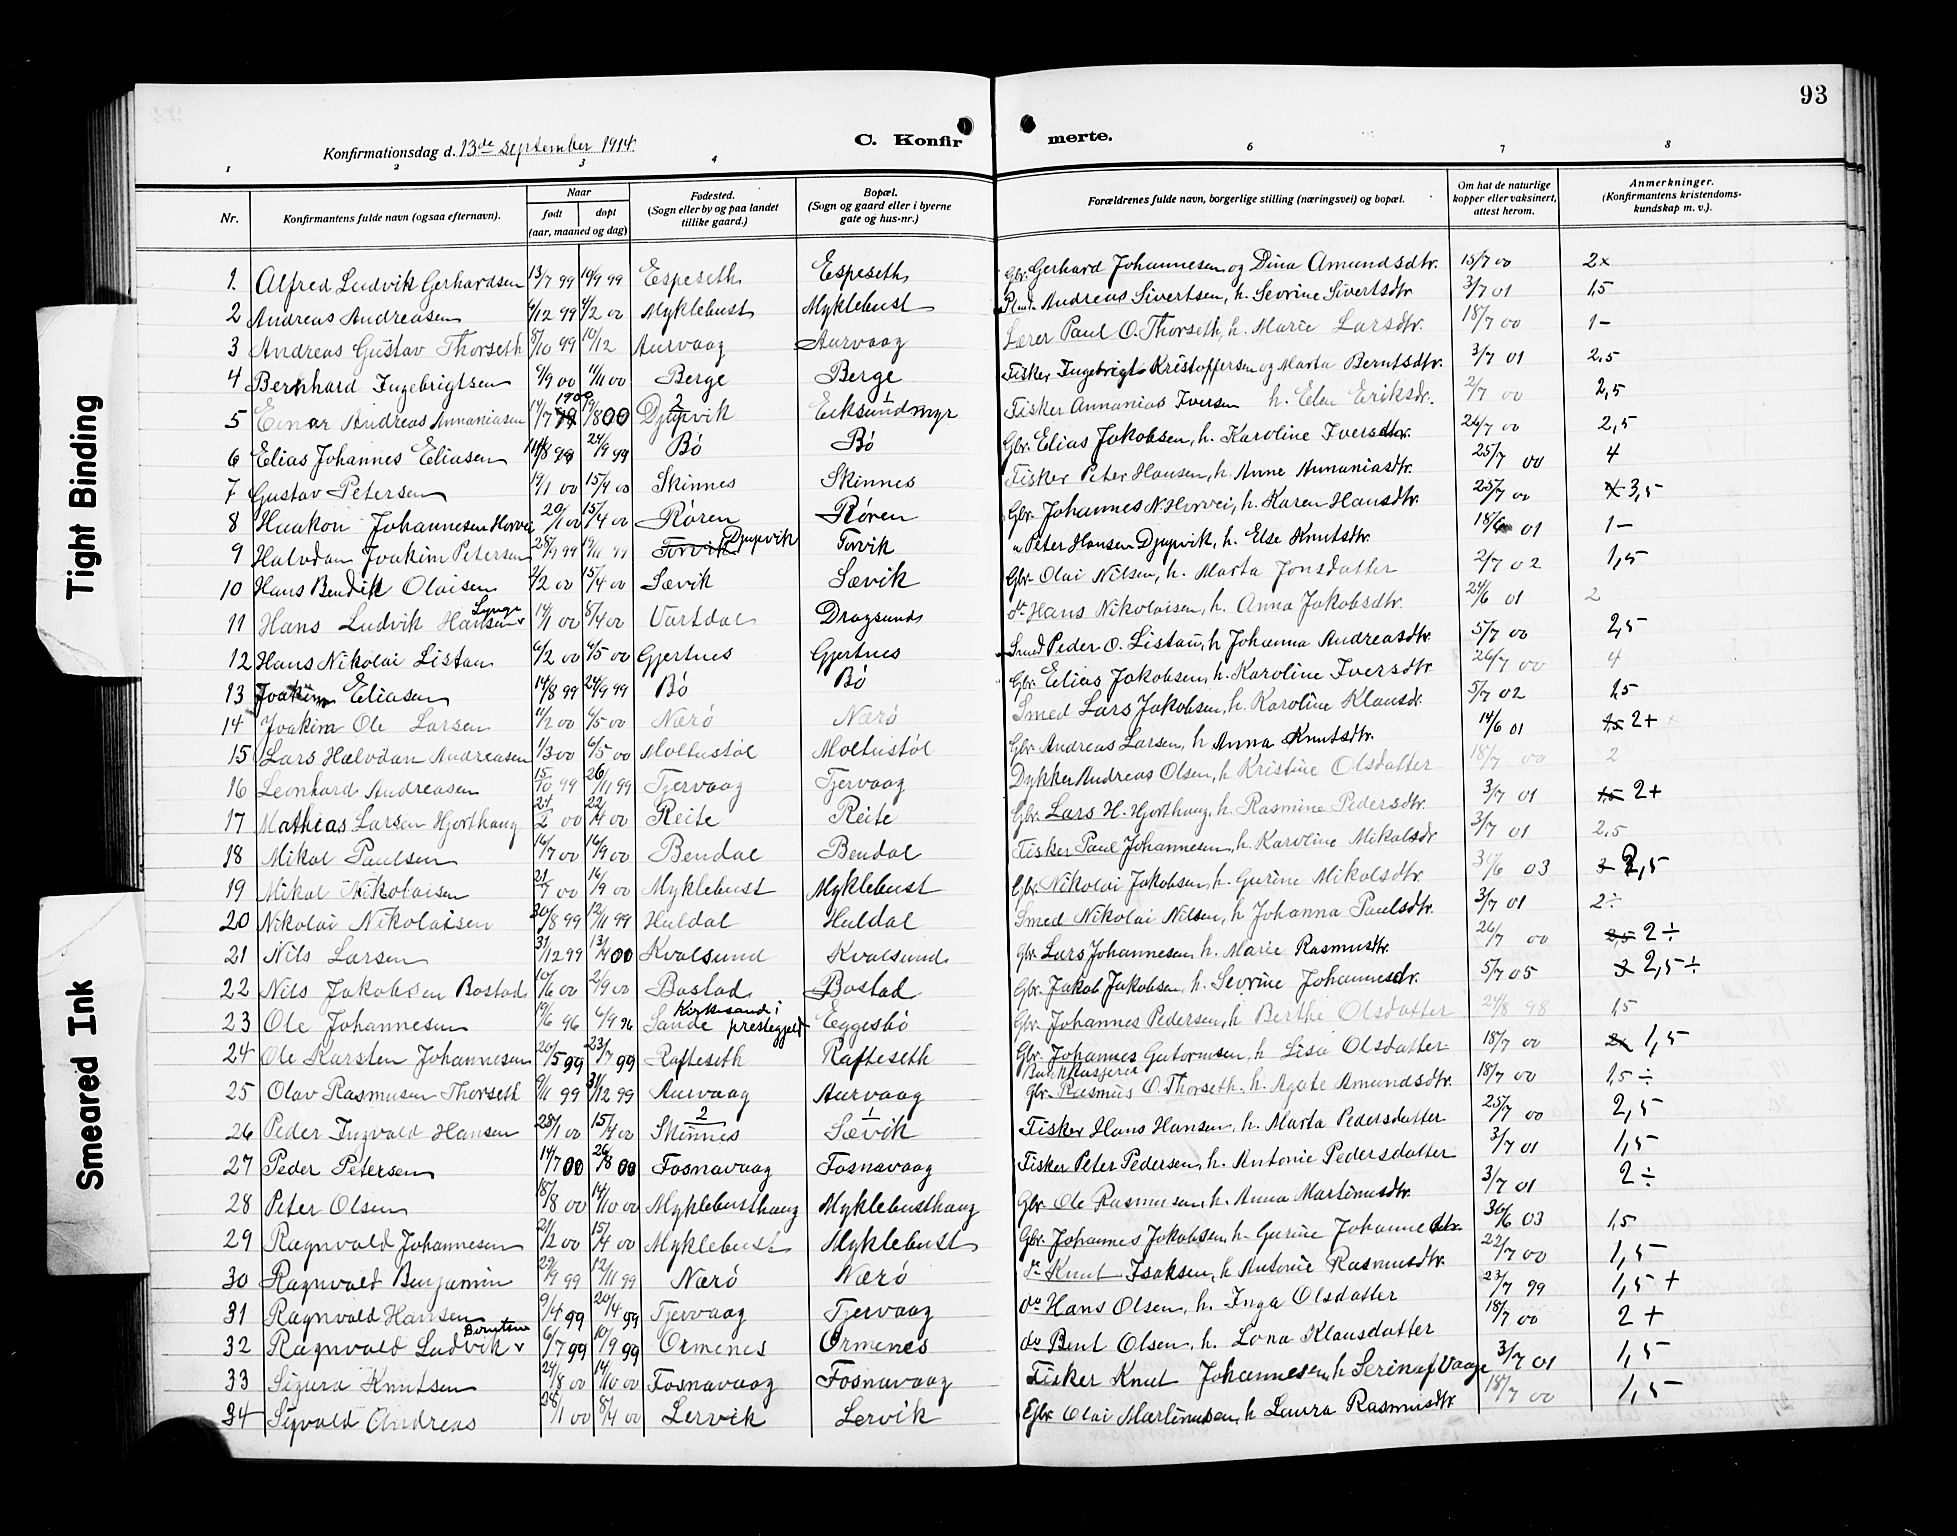 93
Konfirmationsdag d. 13de september 1914.
C. Konfirmerte.
1 2 3 4 6 7 8
Nr. Konfirmantens fulde navn (ogsaa efternavn). Naar født døpt (aar, maaned og dag) Fødested. (Sogn eller by og paa landet tillike gaard.) Bopæl. (Sogn og gaard eller i byerne gate og hus-nr.) Forældrenes fulde navn, borgerlige stilling (næringsvei) og bopæl. Om hat de naturlige kopper eller vaksinert, attest herom. Anmerkninger. (Konfirmantens kristendoms-kundskap m. v.).
1. Alfred Ludvik Gerhardsen 13/7 99 10/9 99 Espeseth Espeseth Gbr. Gerhard Johannesen og Dina Amundsdtr. 15/7 00 2x
2 Andreas Andreasen 6/12 99 4/2 00 Myklebust Myklebust Andreas Sivertsen, h. Sevrine Sivertsdtr 3/7 01 1,5
3 Andreas Gustav Thorseth 8/10 99 10/12 Aurvaag Aurvaag Lærer Paul O. Thorseth, h. Marie Larsdtr. 18/7 00 1-
4 Bernhard Ingebrigtsen 6/9 00 4/11 00 Berge Berge Fisker Ingebrigt Kristoffersen og Marta Berntsdtr. 3/7 01 2,5
5 Einar Andreas Annaniasen 14/7 1900 19/8 00 Djupvik 2 Eiksundmyr 1 Fisker Annanias Iversen h. Elen Eriksdr. 2/7 00 2,5
6 Elias Johannes Eliasen 14/8 99 24/9 99 Bø Bø Gbr. Elias Jakobsen, h. Karoline Iversdtr. 26/7 00 2,5
7 Gustav Petersen 19/1 00 15/4 00 Skinnes Skinnes Fisker Peter Hansen, h. Anne Annaniasdtr. 25/7 00 4
8 Haakon Johannesen Horvei 20/1 00 15/4 00 Røren Røren Gbr. Johannes N. Horvei, h. Karen Hansdtr. 25/7 00 3,5
9 Halvdan Joakim Petersen 28/9 99 19/11 99 Torvik Djupvik Torvik " Peter Hansen Djupvik, h. Else Knutsdtr. 18/6 01 1-
10 Hans Bendik Olaisen 2/2 00 15/4 00 Sævik Sævik Gbr. Olai Nilsen, h. Marta Jonsdatter 2/7 02 1,5
11 Hans Ludvik Hansen Lynge 14/1 00 8/4 00 Vartdal Dragsund do Hans Nikolaisen, h. Anna Jakobsdtr. 24/6 01 2
12 Hans Nikolai Listau 6/2 00 6/5 00 Gjertnes Gjertnes Smed Peder O. Listau, h Johanna Andreasdtr. 5/7 00 2,5
13 Joakim Eliasen 14/8 99 24/9 99 Bø Bø Gbr. Elias Jakobsen, h. Karoline Iversdtr. 26/7 00 4
14 Joakim Ole Larsen 11/2 00 6/5 00 Nærø Nærø Smed Lars Jakobsen, h. Karoline Klausdr. 5/7 02 1,5
15 Lars Halvdan Andreasen 1/3 00 6/5 00 Moltustøl Moltustøl Gbr. Andreas Larsen, h Anna Knutsdtr. 14/6 01 1,5 2+
16 Leonhard Andreasen 15/10 99 26/11 99 Tjervaag Tjervaag Dykker Andreas Olsen, h Kristine Olsdatter 18/7 00 2
17 Mathias Larsen Hjorthaug 24/2 00 22/4 00 Reite Reite Gbr. Lars H. Hjorthaug, h. Rasmine Pedersdtr. 3/7 01 1,5 2+
18 Mikal Paulsen 16/7 00 16/9 00 Bendal Bendal Fisker Paul Johannesen, h. Karoline Mikalsdr 3/7 01 2,5
19 Mikal Nikolaisen 21/7 00 16/9 00 Myklebust Myklebust Gbr. Nikolai Jakobsen, h. Gurine Mikalsdtr 30/6 03 2,5
20 Nikolai Nikolaisen 30/8 99 12/11 99 Huldal Huldal Smed Nikolai Nilsen, h Johanna Paulsdtr. 3/7 01 2÷
21 Nils Larsen 31/12 99 13/4 00 Kvalsund Kvalsund Gbr. Lars Johannesen, h. Marie Rasmusdtr. 26/7 00 2,5 2÷
22 Nils Jakobsen Bostad 10/6 00 2/9 00 Bostad Bostad Gbr. Jakob Jakobsen, h. Sevrine Johannesdr. 5/7 05 2,5÷
23 Ole Johannesen 19/6 96 6/9 96 Sande Kirke sande i prestegjeld Eggesbø Gbr. Johannes Pedersen, h Berthe Olsdatter 24/8 98 1,5
24 Ole Karsten Johannesen 20/5 99 23/7 99 Rafteseth Rafteseth Gbr. Johannes Gutormsen, h Lisa Olsdatter 18/7 00 1,5
25 Olav Rasmusen Thorseth 9/11 99 31/12 99 Aurvaag Aurvaag Gbr. Rasmus O. Thorseth. h. Agate Amundsdtr. 18/7 00 1,5÷
26 Peder Ingvald Hansen 28/1 00 15/4 00 Skinnes 2 Sævik 1 Fisker Hans Hansen, h. Marta Pedersdatter 25/7 00 2,5
27 Peder Petersen 14/7 00 26/8 00 Fosnavaag Fosnavaag Fisker Peter Pedersen, h. Antonie Pedersdatter 3/7 01 1,5
28 Peter Olsen 18/8 00 14/10 00 Myklebusthaug Myklebusthaug Gbr. Ole Rasmusen, h. Anna Martinusdtr. 3/7 01 2÷
29 Ragnvald Johannesen 21/2 00 15/4 00 Myklebust Myklebust Gbr. Johannes Jakobsen, h. Gurine Johannesdtr. 30/6 03 1,5
30 Ragnvald Benjamin 29/9 99 12/11 99 Nærø Nærø do Knut Isaksen, h Antonie Rasmusdtr. 22/7 00 1,5-
31 Ragnvald Hansen 9/4 99 20/4 99 Tjervaag Tjervaag do Hans Olsen, h. Inga Olsdatter 23/7 99 1,5+
32 Ragnvald Ludvik Berntsen 6/7 99 10/9 99 Ormenes Ormenes do Bent Olsen, h. Lona Klausdatter 18/7 00 2+
33 Sigurd Knutsen 24/8 00 14/10 00 Fosnavaag Fosnavaag Fisker Knut Johannesen, h Serina Vaage 3/7 01 1,5
34 Sigvald Andreas 28/1 00 8/4 00 Lervik Lervik Gbr. Olai Martinusen, h Laura Rasmusdtr 18/7 00 1,5-
Tight Binding
Smeared Ink